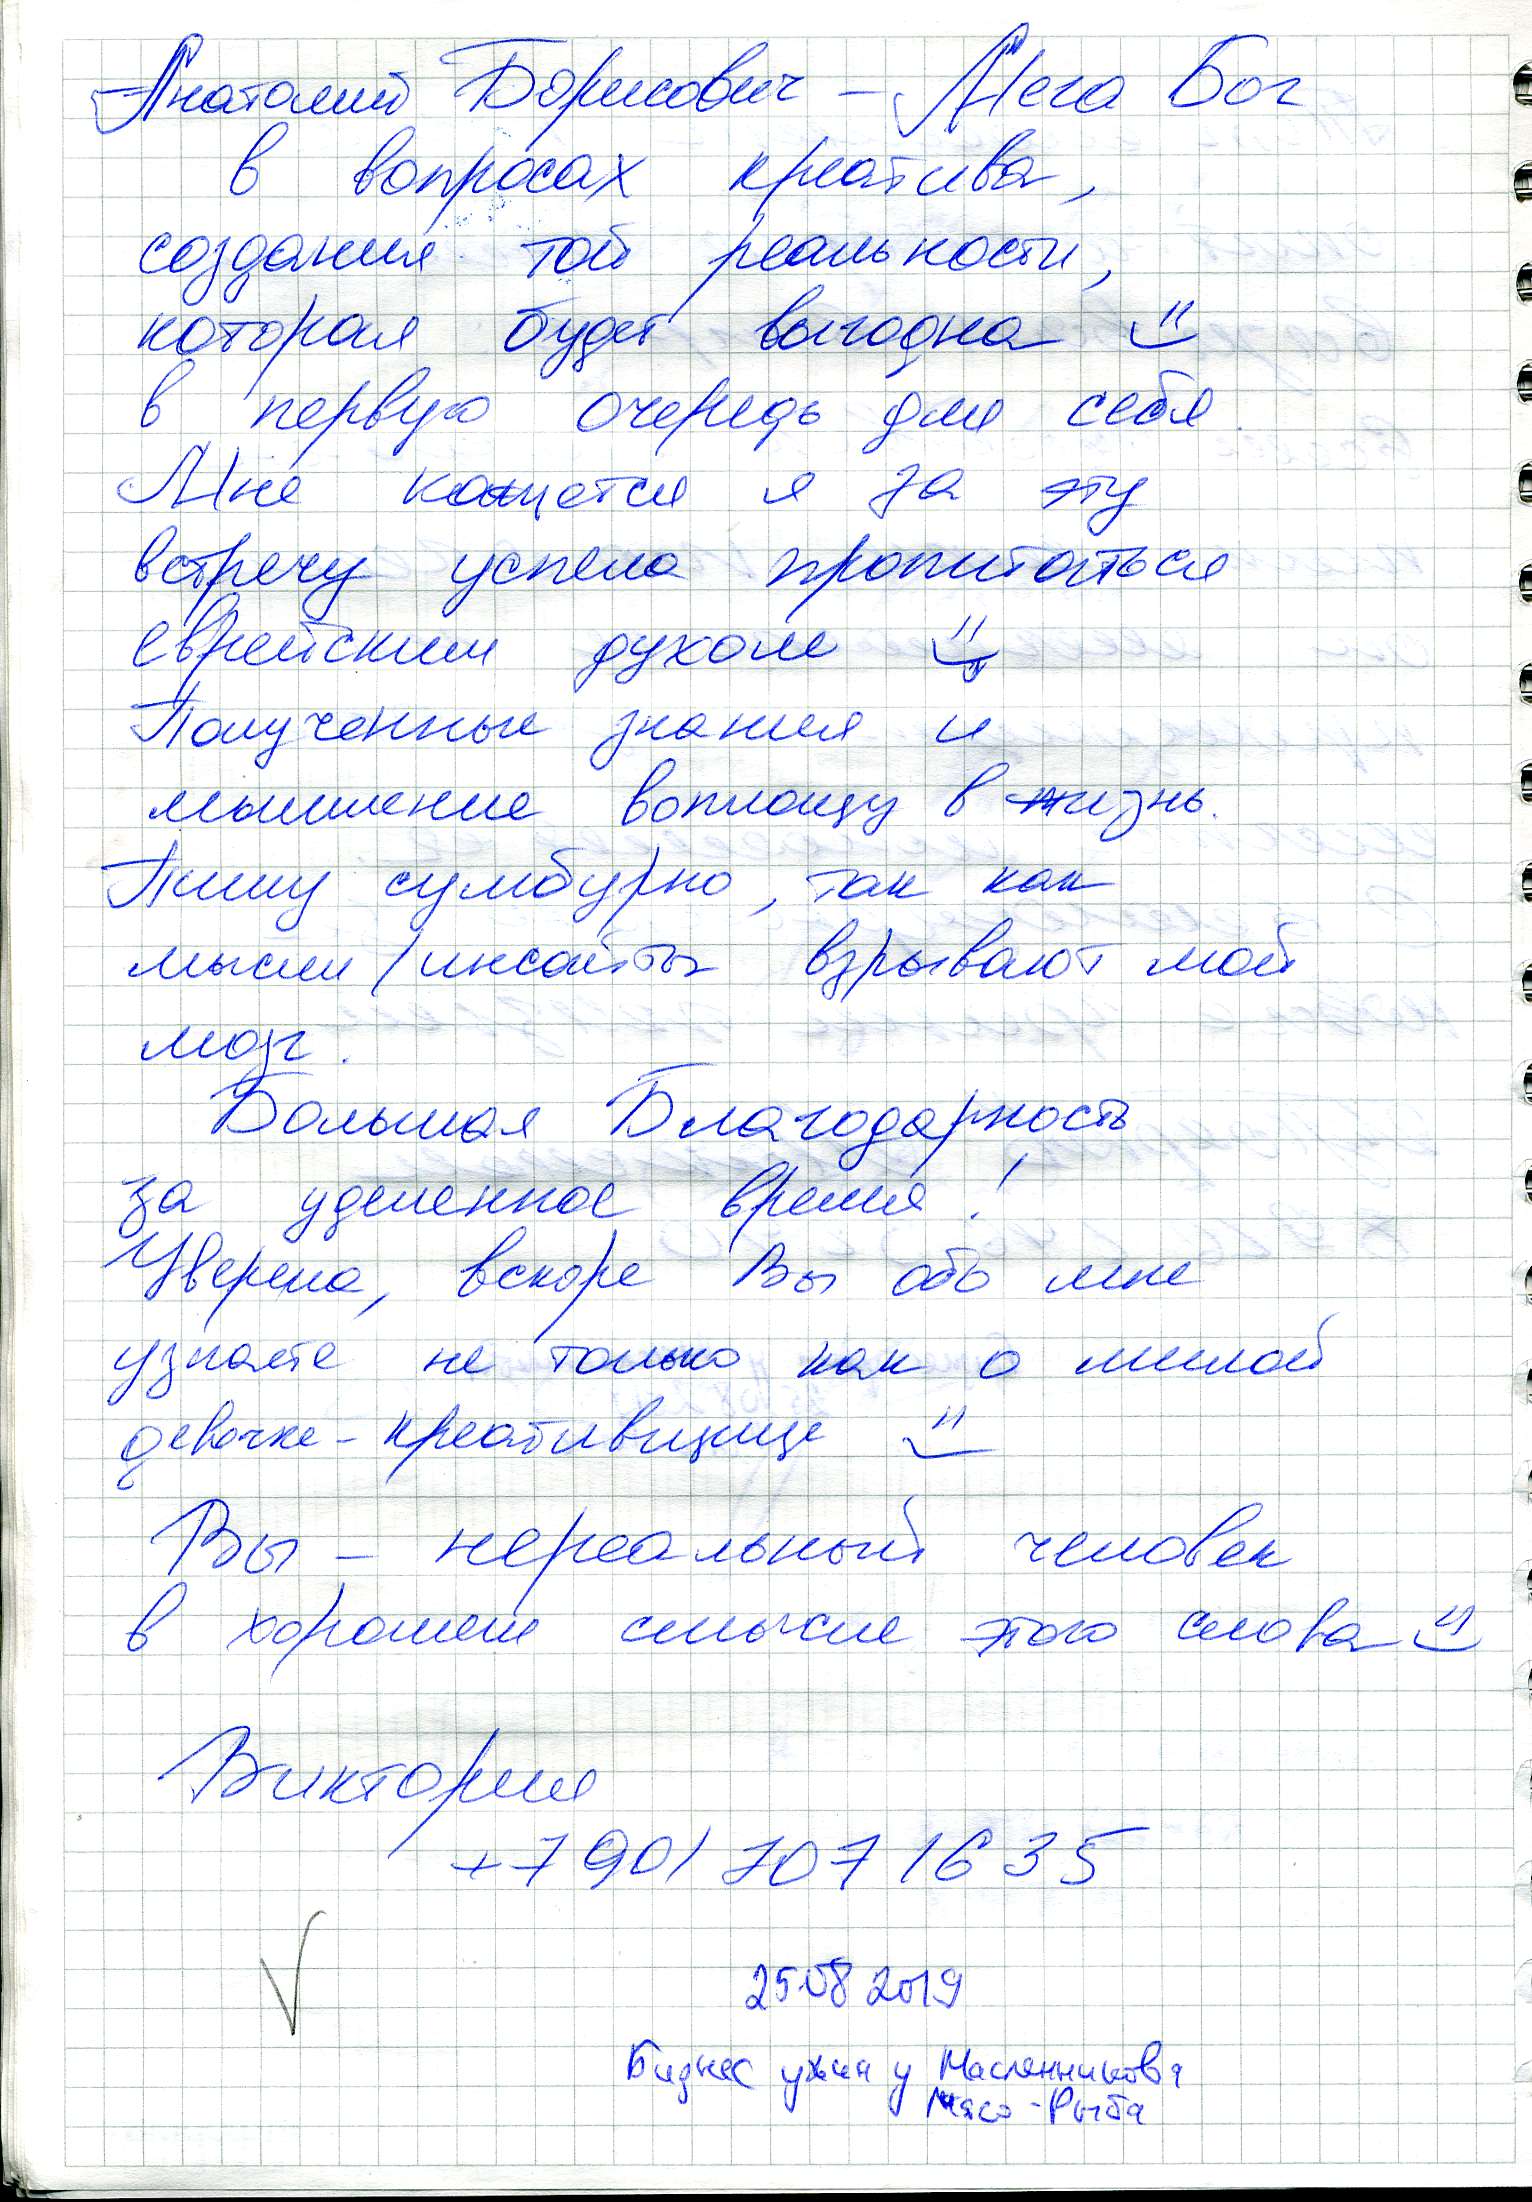 Анатолий Борисович – Мега Бог
в вопросах креатива,
создания той реальности,
которая будет выгодна
в первую очередь для себя.
Мне кажется я за эту
встречу успела пропитаться
еврейским духом
Полученные знания и
мышление воплощу в жизнь.
Пишу сумбурно, так как
мысли/инсайты взрывают мой
мозг.
Большая Благодарность
за уделенное время!
Уверена, вскоре Вы обо мне
узнаете не только как о милой
девочке-креативщице
Вы – нереальный человек
в хорошем смысле этого слова
Виктория
+7 901 707 16 35
25.08 2019
Бизнес ужин у Масленникова
Мясо-Рыба